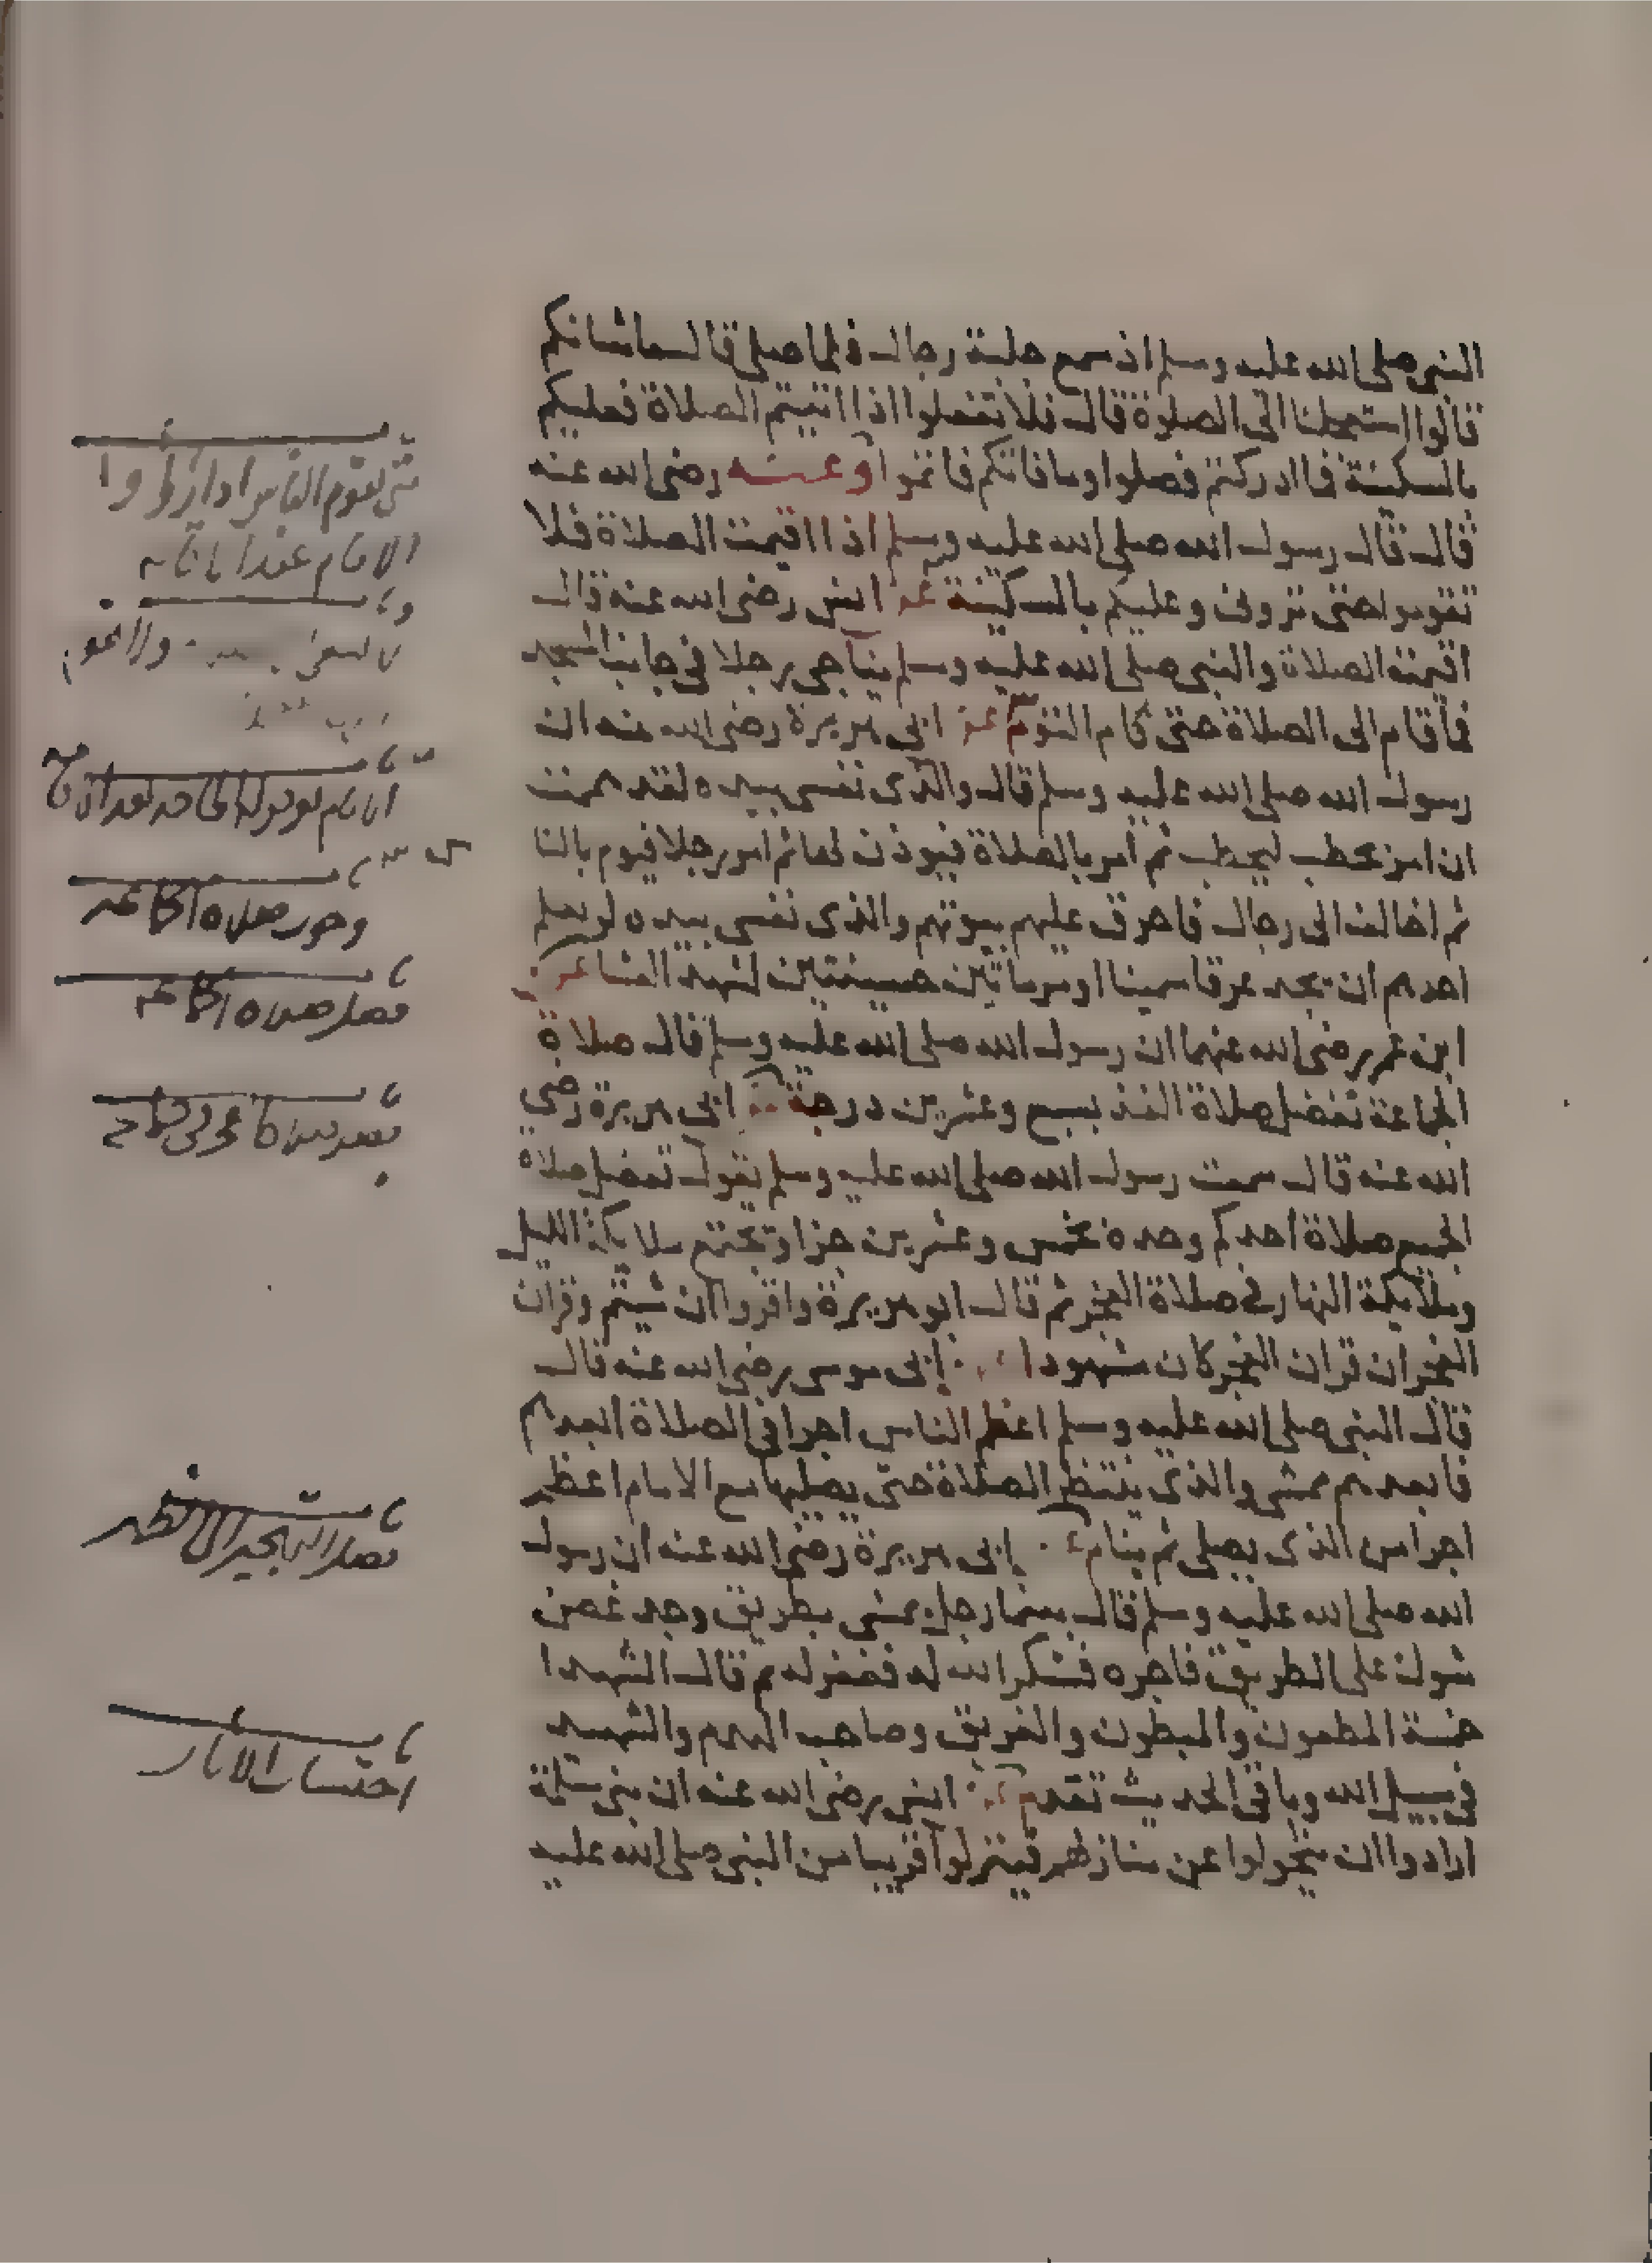 النبي صلى الله عليه وسلم اذ سمع جلبة رجال فلما صلى قال ما شانكم
قالوا استعجلنا الى الصلوة قال فلا تفعلوا اذا اتيتم الصلاة فعليكم
بالسكينة فما ادركتم فصلوا وما فاتكم فاتموا وعنه رضي الله عنه
قال قال رسول الله صلى الله عليه وسلم اذا اقيمت الصلاة فلا
تقوموا حتى تروني وعليكم بالسكينة عن انس رضي الله عنه قال
اقيمت الصلاة والنبي صلى الله عليه وسلم يناجي رجلا في جانب المسجد
فما قام الى الصلاة حتى نام القوم عن ابي هريرة رضي الله عنه ان
رسول الله صلى الله عليه وسلم قال والذي نفسي بيده لقد هممت
ان امر بحطب ليحطب ثم امر بالصلاة فيوذن لها ثم امر رجلا فيوم بالنا
ثم اخالف الى رجال فاحرق عليهم بيوتهم والذي نفسي بيده لو يعلم
احدهم ان يجد عرقا سمينا او مرماتين حسنتين لشهد العشا عن
ابن عمر رضي الله عنهما ان رسول الله صلى الله عليه وسلم قال صلاة
الجماعة تفضل صلاة الفذ بسبع وعشرين درجة ابي هريرة رضي
الله عنه قال سمعت رسول الله صلى الله عليه وسلم يقول تفضل صلاة
الجميع صلاة احدكم وحده بخمس وعشرين جزا وتجتمع ملايكة الليل
وملايكة النهار في صلاة الفجر ثم قال ابو هريرة واقروا ان شيتم وقران
الفجر ان قران الفجر كان مشهودا ابي موسى رضي الله عنه قال
قال النبي صلى الله عليه وسلم اعظم الناس اجرا في الصلاة ابعدهم
فابعدهم ممشى والذي ينتظر الصلاة حتى يصليها مع الامام اعظم
اجرا من الذي يصلي ثم ينام ابي هريرة رضي الله عنه ان رسول
الله صلى الله عليه وسلم قال بينما رجل يمشي بطريق وجد غصن
شوك على الطريق فاخره فشكر الله له فغفر له ثم قال الشهدا
خمسة المطعون والمبطون والغريق وصاحب الهدم والشهيد
في سبيل الله وباقي الحديث تقدم انس رضي الله عنه ان بني سلمة
ارادوا ان يتحولوا عن منازلهم فينزلوا قريبا من النبي صلى الله عليه
متى يقوم الناس اذا راوا
الامام عند الاقامة
وجوب صلاة الجماعة
فضل صلاة الجماعة
فضل التهجير الى الظهر
احتساب الاثار